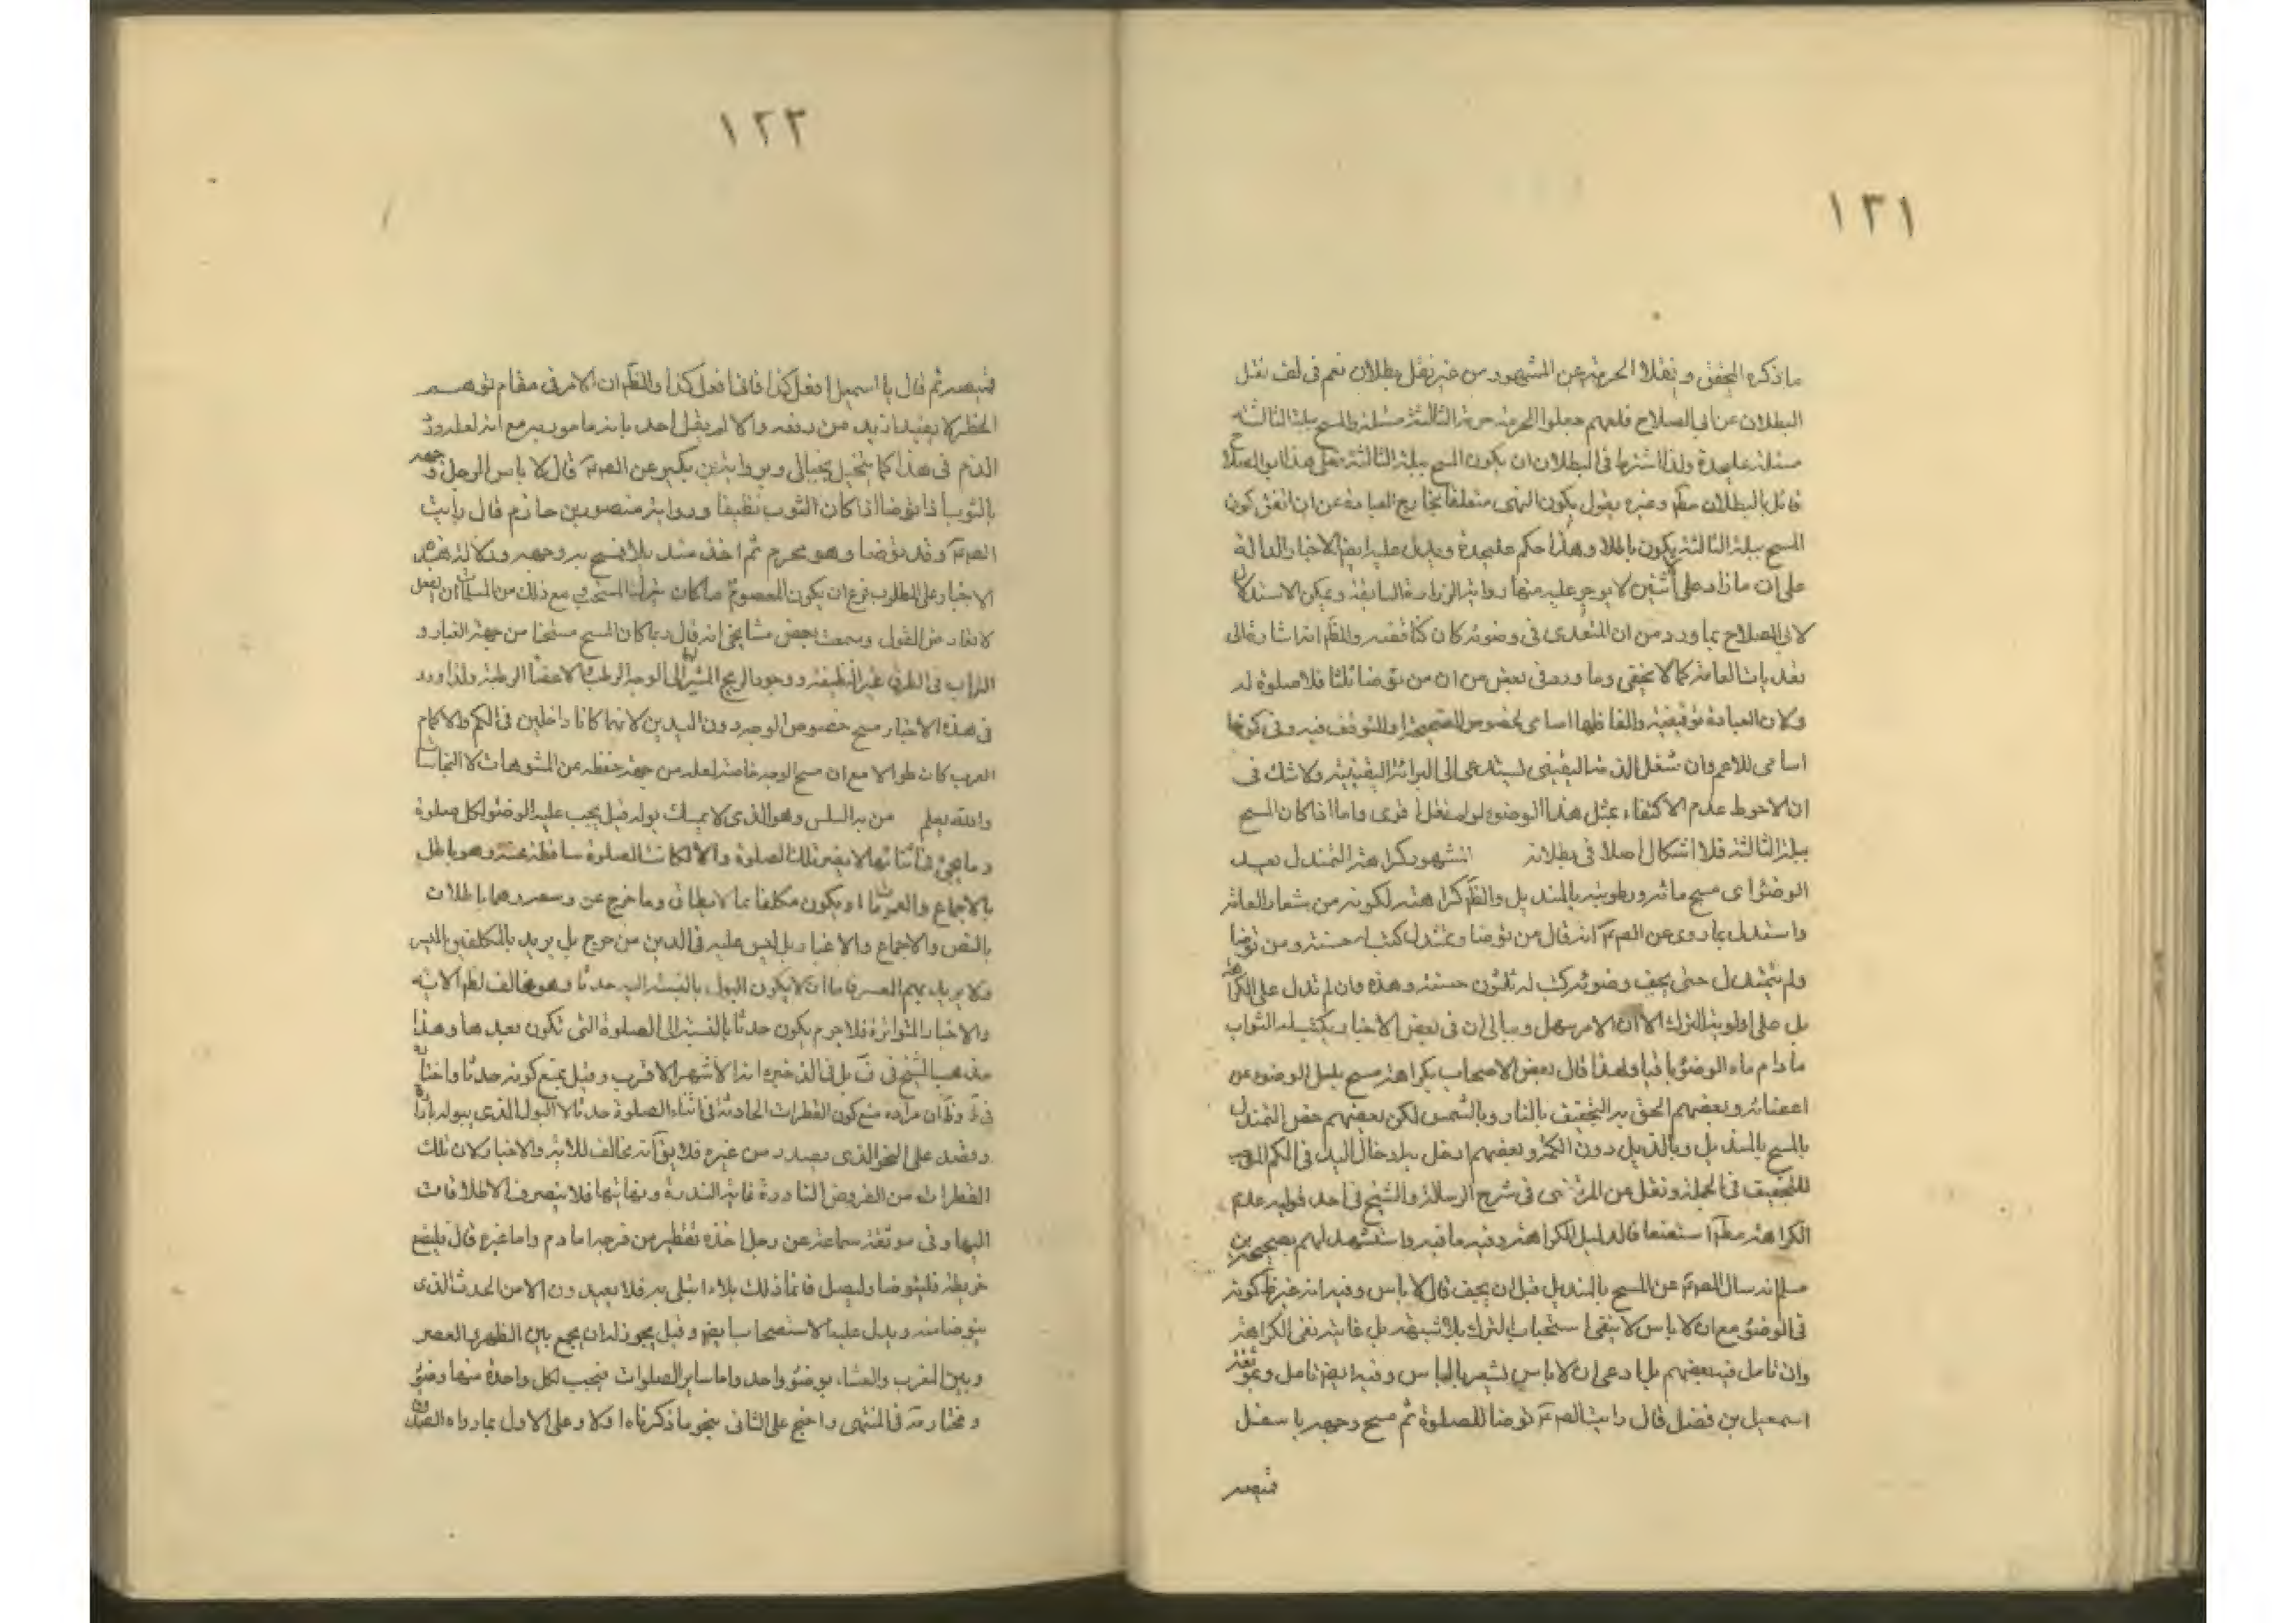 ١٢١
ما ذكره المحقق و نقلا الحرمة عن المشهور من غير نقل بطلان نعم فى لف نقل
البطلان عن ابى الصلاح فلعلهم جعلوا الحرمة حرمة الثالثة مسئلة والمسح ببلة الثالثة
مسئلة عليحدة ولذا اشترط فى البطلان ان يكون المسح ببلة الثالثة فعلى هذا ابو الصلاح
قائل بالبطلان مطَ وغيره يقول بكون النهى متعلقا بخارج العبادة عن ان اتفق كون
المسح ببلة الثالثة يكون باطلا وهذا حكم عليحدة ويدل عليه ايضا الاخبار الدالة
على ان ما زاد على اثنين لا يوجر عليه منها رواية الزرارة السابقة ويمكن الاستدلال
لابى الصلاح بما ورد من ان المتعدى فى وضوئه كان كناقضه والظَ انه اشارة الى
تعديات العامة كما لا يخفى وما ورد فى بعض من ان من توضا ثلثا فلا صلوة له
ولان العبادة توقيفية والفاظها اسامى لخصوص الصحيحة او للتوقف فيه وفى كونها
اسامى للاعم وان شغل الذمة اليقينى يستدعى الى البرائة اليقينية ولا شك فى
ان الاحوط عدم الاكتفاء بمثل هذا الوضوء لو لم نقل اقوى واما اذا كان المسح
ببلة الثالثة فلا اشكال اصلا فى بطلانه المشهور كراهة التمندل بعد
الوضوء اى مسح مائه ورطوبته بالمنديل والظَ كراهته لكونه من شعار العامة
واستدل بما روى عن الصَ انه قال من توضا وتمندل كتب له حسنة ومن توضا
ولم يتمندل حتى يجف وضوئه كتب له ثلثون حسنة وهذه وان لم تدل على الكراهة
بل على اولوية الترك الا ان الامر سهل وببالى ان فى بعض الاخبار يكتب له الثواب
ما دام ماء الوضوء باقيا ولهذا قال بعض الاصحاب بكراهة مسح بلل الوضوء عن
اعضائه وبعضهم الحق به التجفيف بالنار وبالشمس لكن بعضهم خص التمندل
بالمسح بالمنديل وبالذيل دون الكم وبعضهم ادخل ببلة ادخال اليد فى الكم
للتجفيف فى الجملة ونقل عن المرتضى فى شرح الرسالة والشيخ فى احد قوليه عدم
الكراهة مطَ استضعافا لدليل الكراهة وفيه ما فيه واستشهد لهم بصحيحة بن
مسلم انه سال الصَ عن المسح بالمنديل قبل ان يجف قال لا باس وفيه انه غير ظَ كونه
فى الوضوء مع ان لا باس لا ينفى استحباب الترك بلا شبهة بل غايته نفى الكراهة
وان تامل فيه بعضهم بل ادعى ان لا باس يشعر بالباس وفيه ايضا تامل وبموثقة
اسمعيل بن فضل قال رايت الصَ توضا للصلوة ثم مسح وجهه باسفل
قميصه
١٢٢
قميصه ثم قال يا اسمعيل افعل كذا فانى افعل كذا والظَ ان الامر فى مقام توهم
الحظر لا يفيد ازيد من رفعه والا لم يقل احد بانه مامور به مع انه لعله ورد
الذم فى هذا كما يتخيل بخيالى وبرواية بن بكير عن الصَ قال لا باس الرجل وجهه
بالثوب اذا توضا اذا كان الثوب نظيفا ورواية منصور بن حازم قال رايت
الصَ وقد توضا وهو محرم ثم اخذ منديلا فمسح به وجهه ودلالة هذه
الاخبار على المطلوب فرع ان يكون المعصوم ما كان يترك المستحب مع ذلك من المسلمات ان الفعل
لا يعارض القول وسمعت بعض مشايخى انه قال ربما كان المسح مستحبا من جهة الغبار و
التراب فى الطرق غير النظيفة ووجود الريح المثير الى الوجه الرطب والاعضاء الرطبة ولذا ورد
فى هذه الاخبار مسح خصوص الوجه دون اليدين لانهما كانا داخلين فى الكم والاكمام
العرب كان طوالا مع ان مسح الوجه خاصة لعله من جهة حفظه عن المشوهات لا النجاسات
والله يعلم من به السلس وهو الذى لا يمسك بوله قيل يجب عليه الوضوء لكل صلوة
وما يجئ فى اثنائها لا يضر تلك الصلوة والا لكانت الصلوة ساقطة عنه وهو باطل
بالاجماع والعمومات او يكون مكلفا بما لا يطاق وما خرج عن وسعه وهما باطلان
بالنص والاجماع والاعتبار بل ليس عليه فى الدين من حرج بل يريد بالمكلفين اليسر
ولا يريد بهم العسر فاما ان لا يكون البول بالنسبة اليه حدثا وهو مخالف لظَ الاية
والاخبار المتواترة فلا جرم يكون حدثا بالنسبة الى الصلوة التى تكون بعدها وهذا
مذهب الشيخ فى فَ بل فى الذخيرة انه الاشهر الاقرب وقيل يمنع كونه حدثا واختاره
فى طَ وظَ ان مراده منع كون القطرات الحادثة فى اثناء الصلوة حدثا لا البول الذى يبوله بارادة
وقصد على النحو الذى يصدر من غيره فلا يق انه مخالف للاية والاخبار لان تلك
القطرات من الفروض النادرة غاية الندرة ونهايتها فلا ينصرف الاطلاقات
اليها وفى موثقة سماعة عن رجل اخذه تقطير من فرجه اما دم واما غيره قال فليضع
خريطة فليتوضا وليصل فانما ذلك بلاء ابتلى به فلا يعيدون الا من الحدث الذى
يتوضا منه ويدل عليه الاستصحاب ايضا وقيل يجوز له ان يجمع بين الظهر والعصر
وبين المغرب والعشاء بوضوء واحد واما ساير الصلوات فيجب لكل واحدة منها وضوء
ومختاره فى المنتهى واحتج على الثانى بنحو ما ذكرناه اولا وعلى الاول بما رواه الصدوق